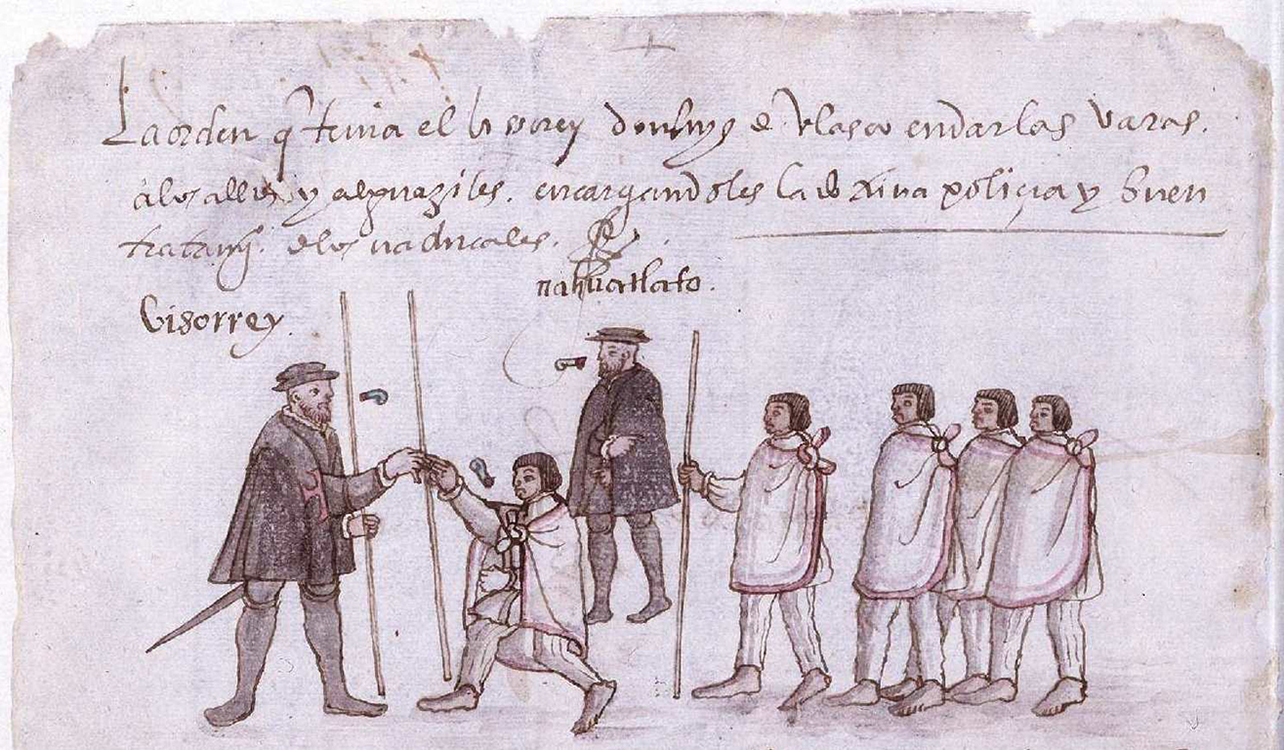 La orden q̃ tenia el bisorey don luys de velasco en dar las varas.
a los alldes y alguaziles. encargandoles la doctrina poliçia y buen
tratamyº de los naturales.
nahuatlato.
Visorrey